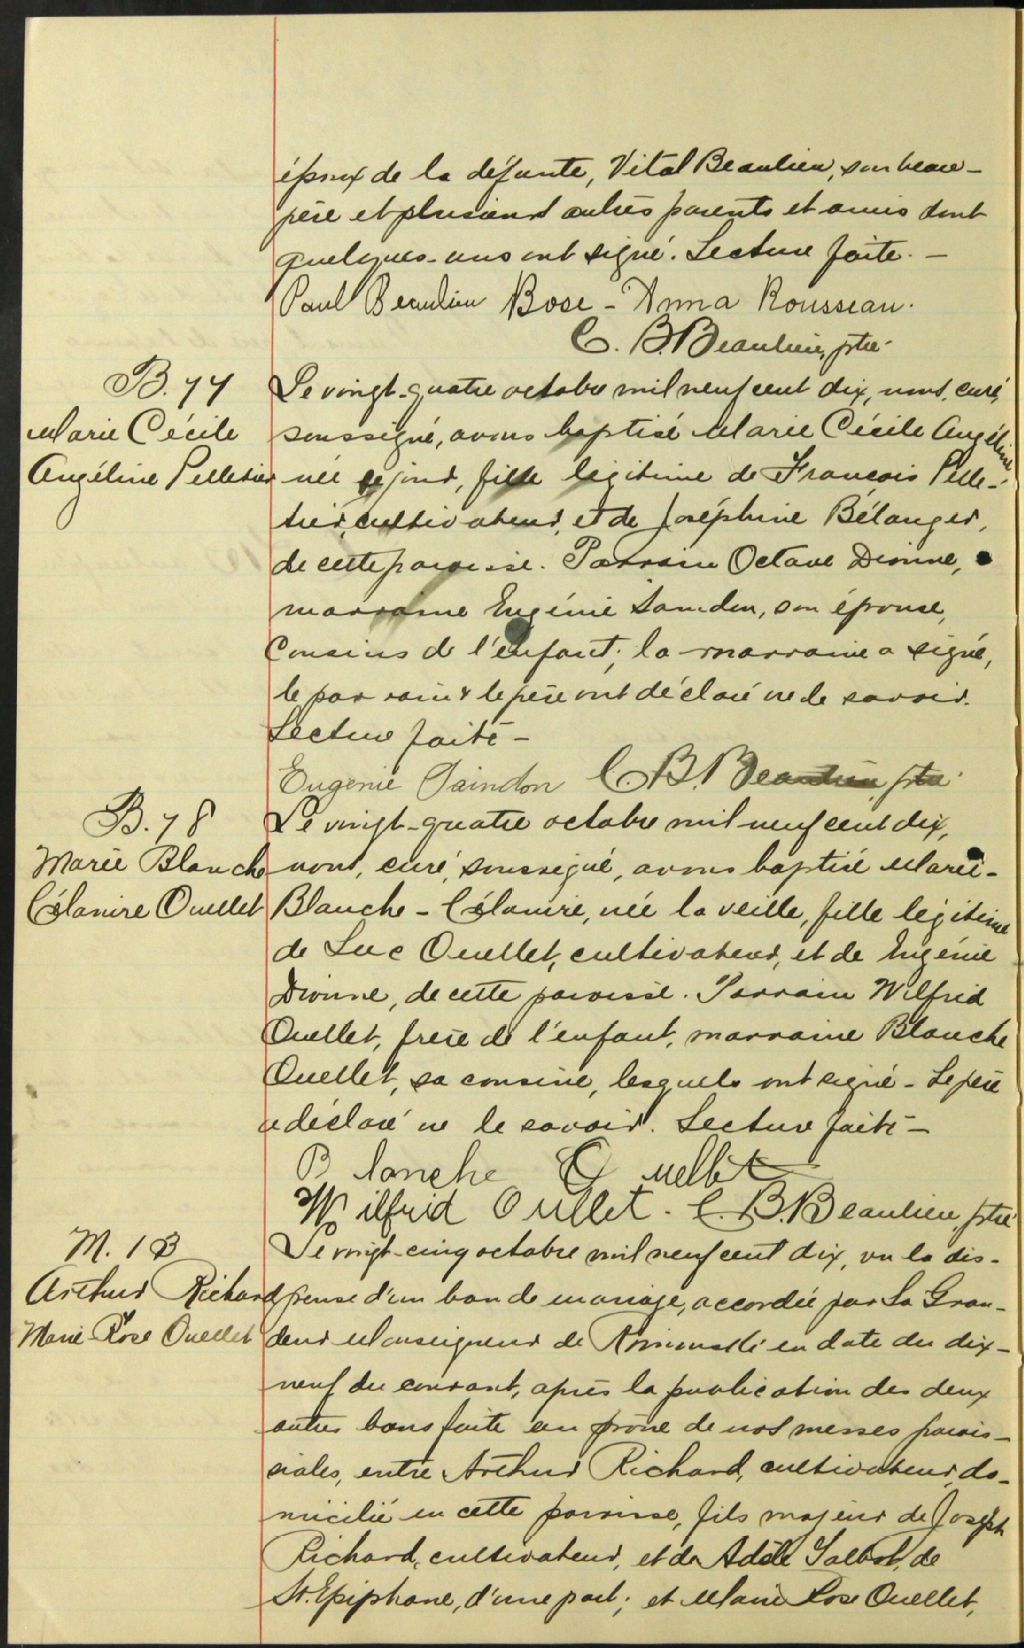 époux de la défunte, Vital Beaulieu, son beau-
père et plusieurs autres parents et amis dont
quelques-uns ont signé. Lecture faite. -
Paul Beaulieu Rose-Anna Rousseau.
C. B. Beaulieu, ptre
B. 77
Marie Cécile
Angéline Pelletier
Le vingt-quatre octobre mil neuf cent dix, nous, curé,
soussigné, avons baptisé Marie Cécile Angéline
née ce jour, fille légitime de François Pelle-
tier, cultivateur, et de Joséphine Bélanger,
de cette paroisse. Parrain Octave Dionne,
marraine Eugénie Saindon, son épouse,
Cousins de l'enfant; la marraine a signé,
le parrain & le père ont déclaré ne le savoir.
Lecture faite -
Eugenie Saindon C. B. Beaulieu, ptre
B. 78
Marie Blanche
Célanire Ouellet
Le vingt-quatre octobre mil neuf cent dix,
nous, curé, soussigné, avons baptisé Marie-
Blanche-Célanire, née la veille, fille légitime
de Luc Ouellet, cultivateur, et de Eugénie
Dionne, de cette paroisse. Parrain Wilfrid
Ouellet, frère de l'enfant, marraine Blanche
Ouellet, sa cousine, lesquels ont signé - Le père
a déclaré ne le savoir. Lecture faite -
Blanche Ouellet
Wilfrid Oullet. C. B. Beaulieu, ptre
M. 13
Arthur Richard
&
Marie-Rose Ouellet
Le vingt-cinq octobre mil neuf cent dix, vu la dis-
pense d'un ban de mariage, accordée par Sa Gran-
deur Monseigneur de Rimouski en date du dix-
neuf du courant, après la publication des deux
autres bans faite au prône de nos messes parois-
siales, entre Arthur Richard, cultivateur, do-
micilié en cette paroisse, fils majeur de Joseph
Richard, cultivateur, et de Adèle Talbot, de
St. Epiphane, d'une part; et Marie Rose Ouellet,